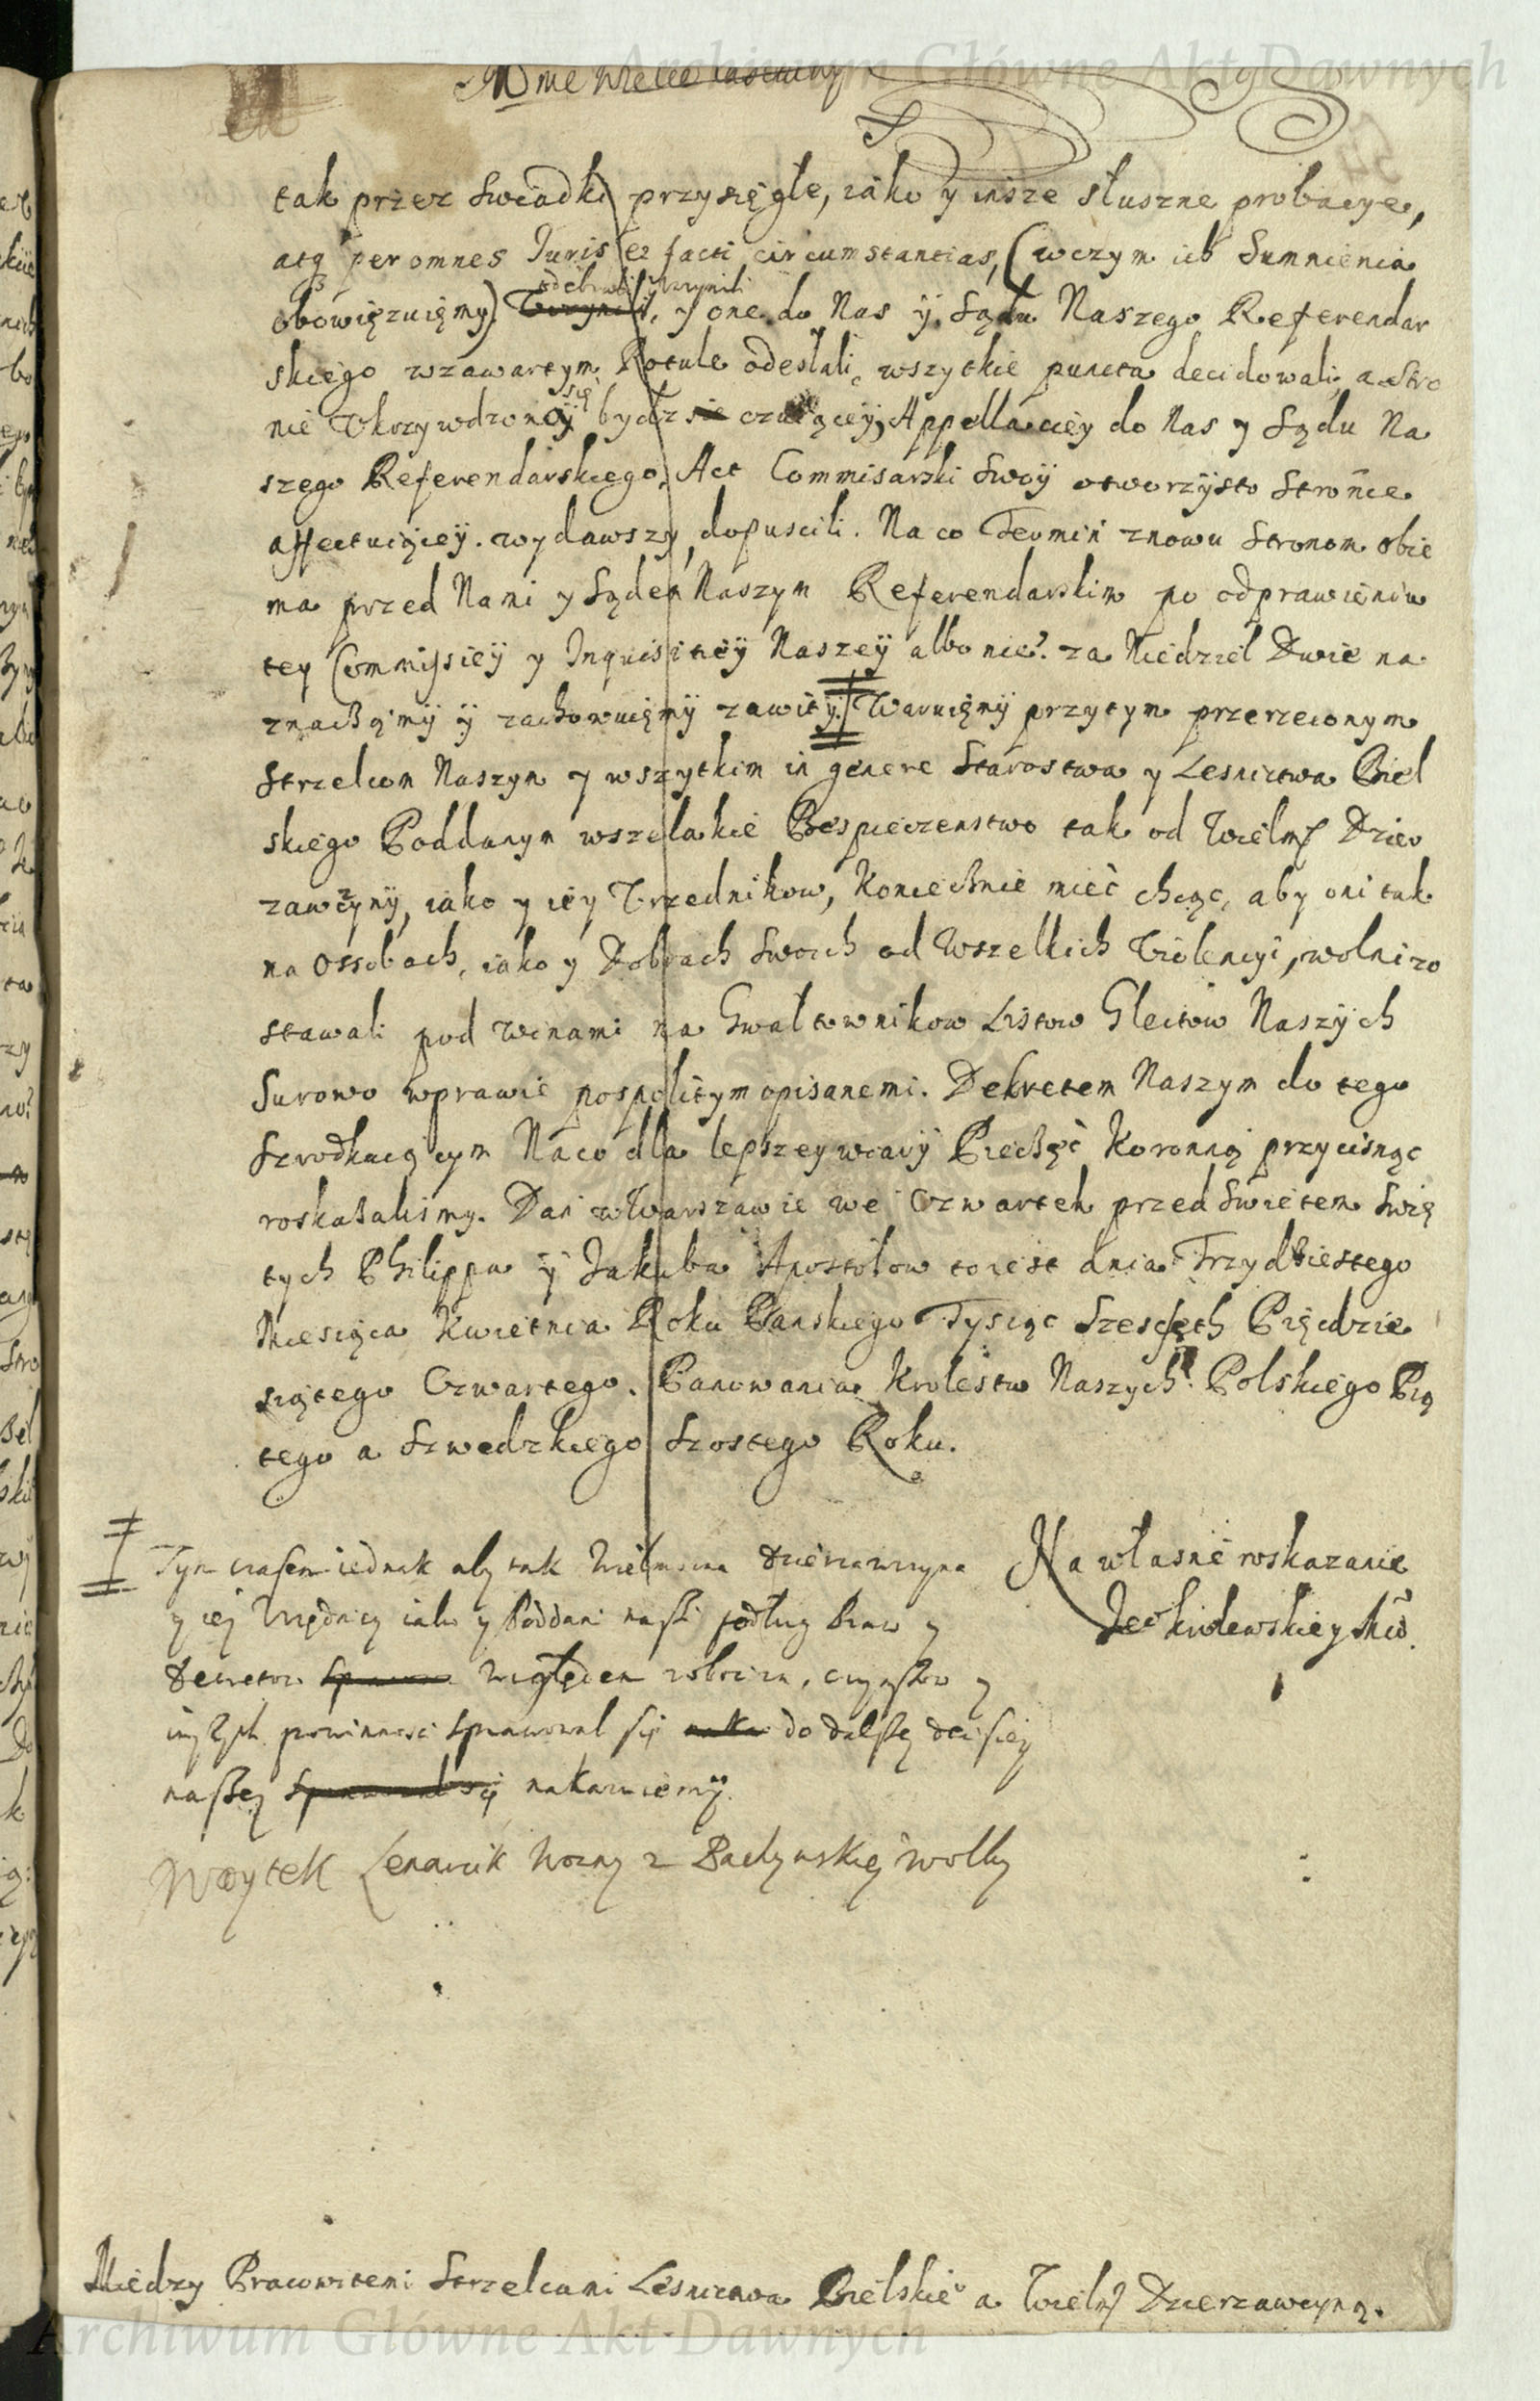 Archiwum Główne Akt Dawnych
Mnie wielce
tak przez Swiadki przysięgłe, iako y insze słuszne probacye,
atq3 per omnes Juris et facti circumstantias, (wczym ich Sumnienia
odebrali y uczynili
obowięzuięmy) Uczynili, y one do Nas ÿ Sądu Naszego Referendar
skiego wzawartym Rotule odesłali, wszytkie puncta decidowali, a Stro
się
nie Ukrzywdzonęÿ bydz sie czuięceÿ, Appellacięy do Nas y Sądu Na
szego Referendarskiego, Act Commisarski Swoÿ otworzÿsto Stronie
affectuięceÿ wydawszy, dopuscili. Na co Termin znowu Stronom obie
ma przed Nami y Sądem Naszym Referendarskim po odprawieniu
tey Commissieÿ y Inquisitieÿ Naszeÿ albo nie. za Niedziel Dwie na
znaczęmÿ ÿ zachowuięmÿ zawitÿ. Waruięmÿ przytym przerzeconym
Strzelcom Naszym y wszytkim in genere Starostwa y Lesnictwa Biel
skiego Poddanym wszelakie Bespieczenstwo tak od Wielmz Dzier
zawczynÿ, iako y iey Urzednikow, Koniecznie mieć chcąc, aby oni tak
na Ossobach, iako y Dobrach Swoich od Wszelkich Violencyi, wolni zo
stawali pod winami na Gwałtownikow Listow Gleitow Naszÿch
Surowo wprawie pospolitym opisanemi. Dekretem Naszym do tego
Szrodkuiącym Na co dla lepszey wiarÿ Pieczęć Koronną przycisnąc
roskazalismy. Dan w Warszawie we Czwartek przed Swietem Swię
tych Philippa ÿ Jakuba Apostołow to iest dnia Trzydziestego
Miesiąca Kwietnia Roku Panskiego Tysiąc Szescseth Pięcdzie
siątego Czwartego. Panowania Krolestw Naszych Polskiego Pią
tego a Szwedzkiego Szostego Roku.
Tym czasem iednak aby tak Wielmozna Dzierzawczyna
y iej Urzędnicy iako y Poddani nasi podług Praw y
Decretow względem robocizn, czynszow y
inszych powinnosci sprawował się do dalszej decisiey
naszej nakazuiemÿ.
Na własne roskazanie
Jeo Krolewskiey Mci.
Woytek Lenarcik Wozny z Wolky
Miedzy Pracowitemi Strzelcami Lesnictwa Bielskieo a Wielmz Dzierzawczyną.
Archiwum Główne Akt Dawnych